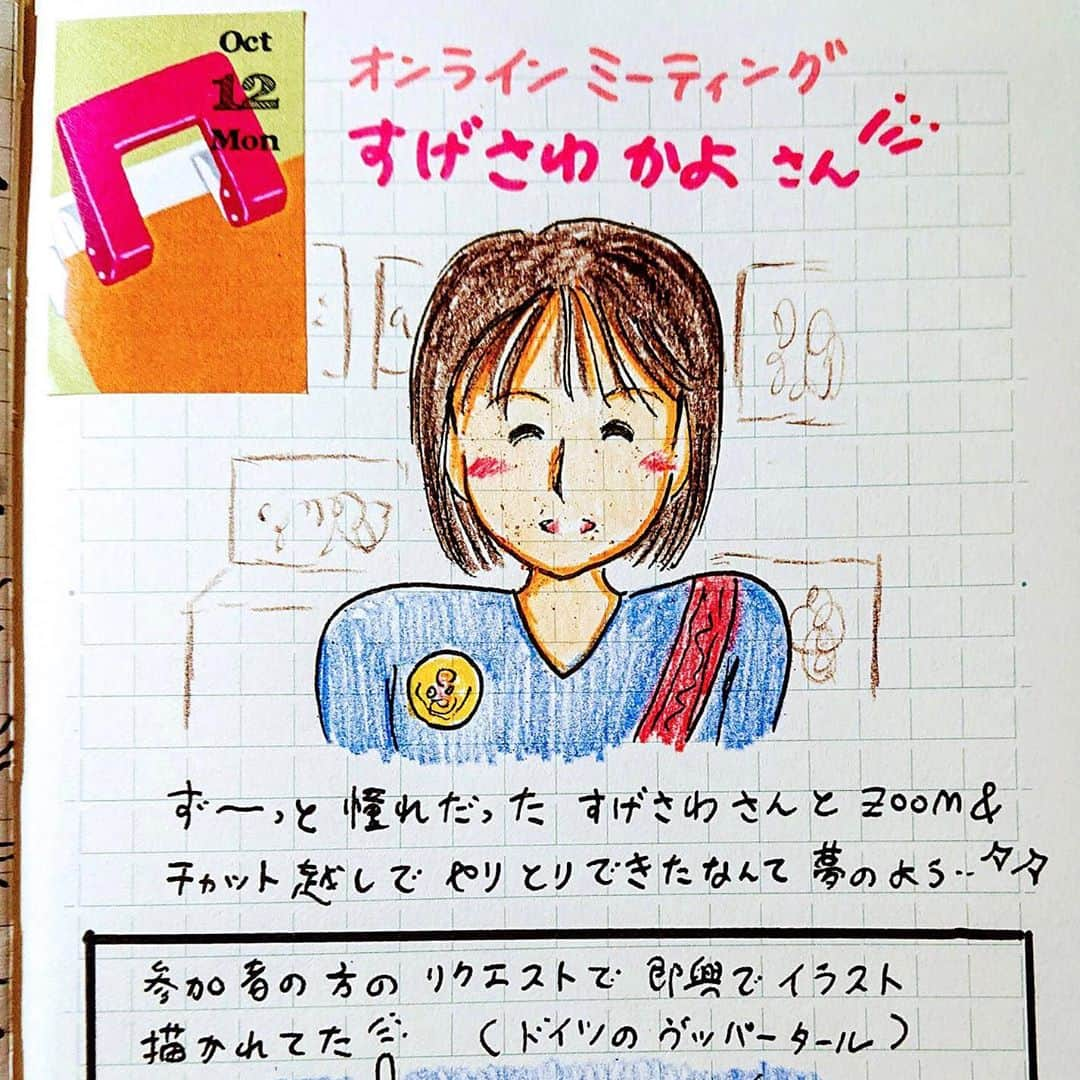 Oct
12
Mon
オンラインミーティング
すげさわ かよ さん
ず〜っと 憧れだった すげさわさんと ZOOM&
チャット越しで やりとりできたなんて 夢のよう‥
参加者の方の リクエストで 即興でイラスト
描かれてた
(ドイツの ヴッパータール)